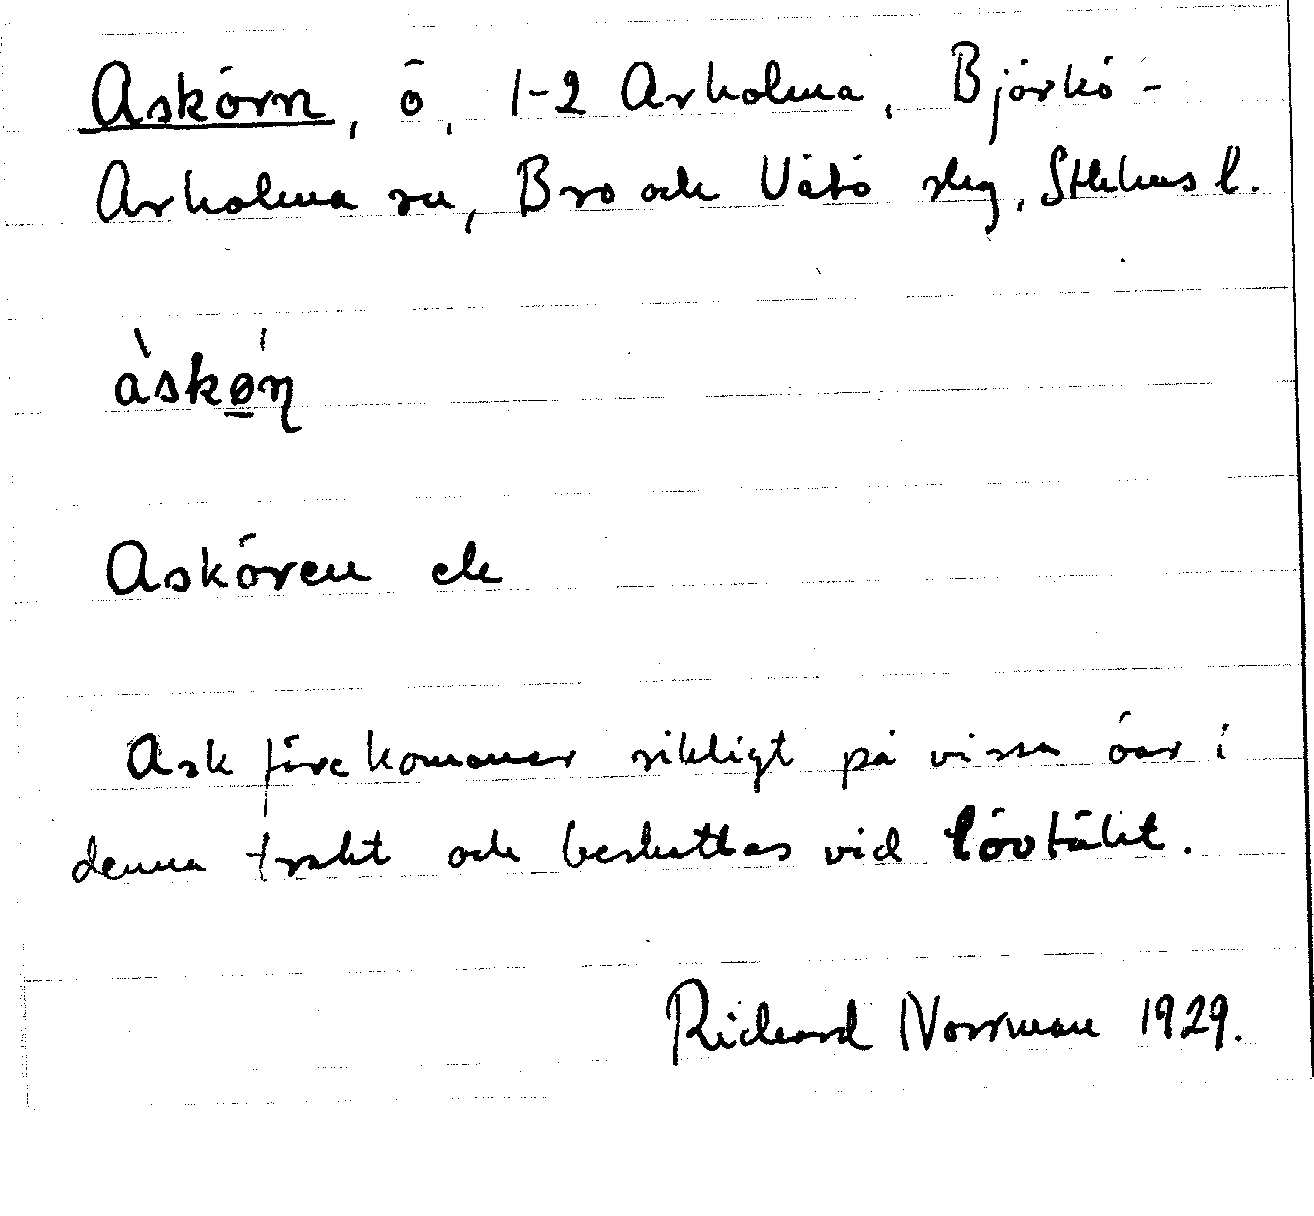 Askörn, ö, 1-2 Arholma, Björkö-
Arholma sn, Bro och Vätö slg, Sthlms l.
àskǿ̱ɳ
Askören ek
Ask förekommer rikligt på vissa öar i
denna trakt och beskattas vid lövtäkt.
Richard Norrman 1929.